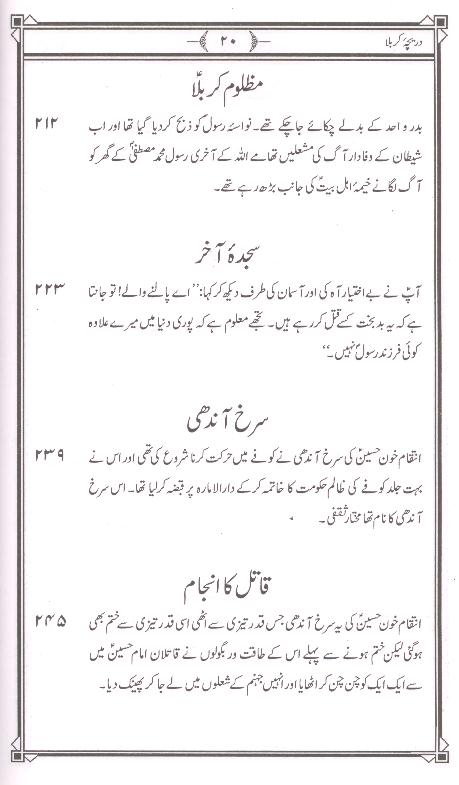 دریچۂ کربلا
۲۰
مظلوم کربلاؑ
بدر و احد کے بدلے چکائے جاچکے تھے۔ نواسۂ رسولؐ کو ذبح کردیا گیا تھا اور اب ۲۱۲
شیطان کے وفادار آگ کی مشعلیں تھامے اللہ کے آخری رسول محمد مصطفیٰؐ کے گھر کو
آگ لگانے خیمۂ اہل بیتؑ کی جانب بڑھ رہے تھے۔
سجدۂ آخر
آپؑ نے بے اختیار آہ کی اور آسمان کی طرف دیکھ کر کہا: ’’اے پالنے والے! تو جانتا ۲۲۳
ہے کہ یہ بدبخت کسے قتل کر رہے ہیں۔ تجھے معلوم ہے کہ پوری دنیا میں میرے علاوہ
کوئی فرزند رسولؐ نہیں۔‘‘
سرخ آندھی
انتقام خون حسینؑ کی سرخ آندھی نے کوفے میں حرکت کرنا شروع کی تھی اور اس نے ۲۳۹
بہت جلد کوفے کی ظالم حکومت کا خاتمہ کر کے دارالامارہ پر قبضہ کرلیا تھا۔ اس سرخ
آندھی کا نام تھا مختار ثقفی۔
قاتل کا انجام
انتقام خون حسینؑ کی یہ سرخ آندھی جس قدر تیزی سے اٹھی اسی قدر تیزی سے ختم بھی ۲۴۵
ہوگئی لیکن ختم ہونے سے پہلے اس کے طاقت ور بگولوں نے قاتلان امام حسینؑ میں
سے ایک ایک کو چن چن کر اٹھایا اور انہیں جہنم کے شعلوں میں لے جا کر پھینک دیا۔